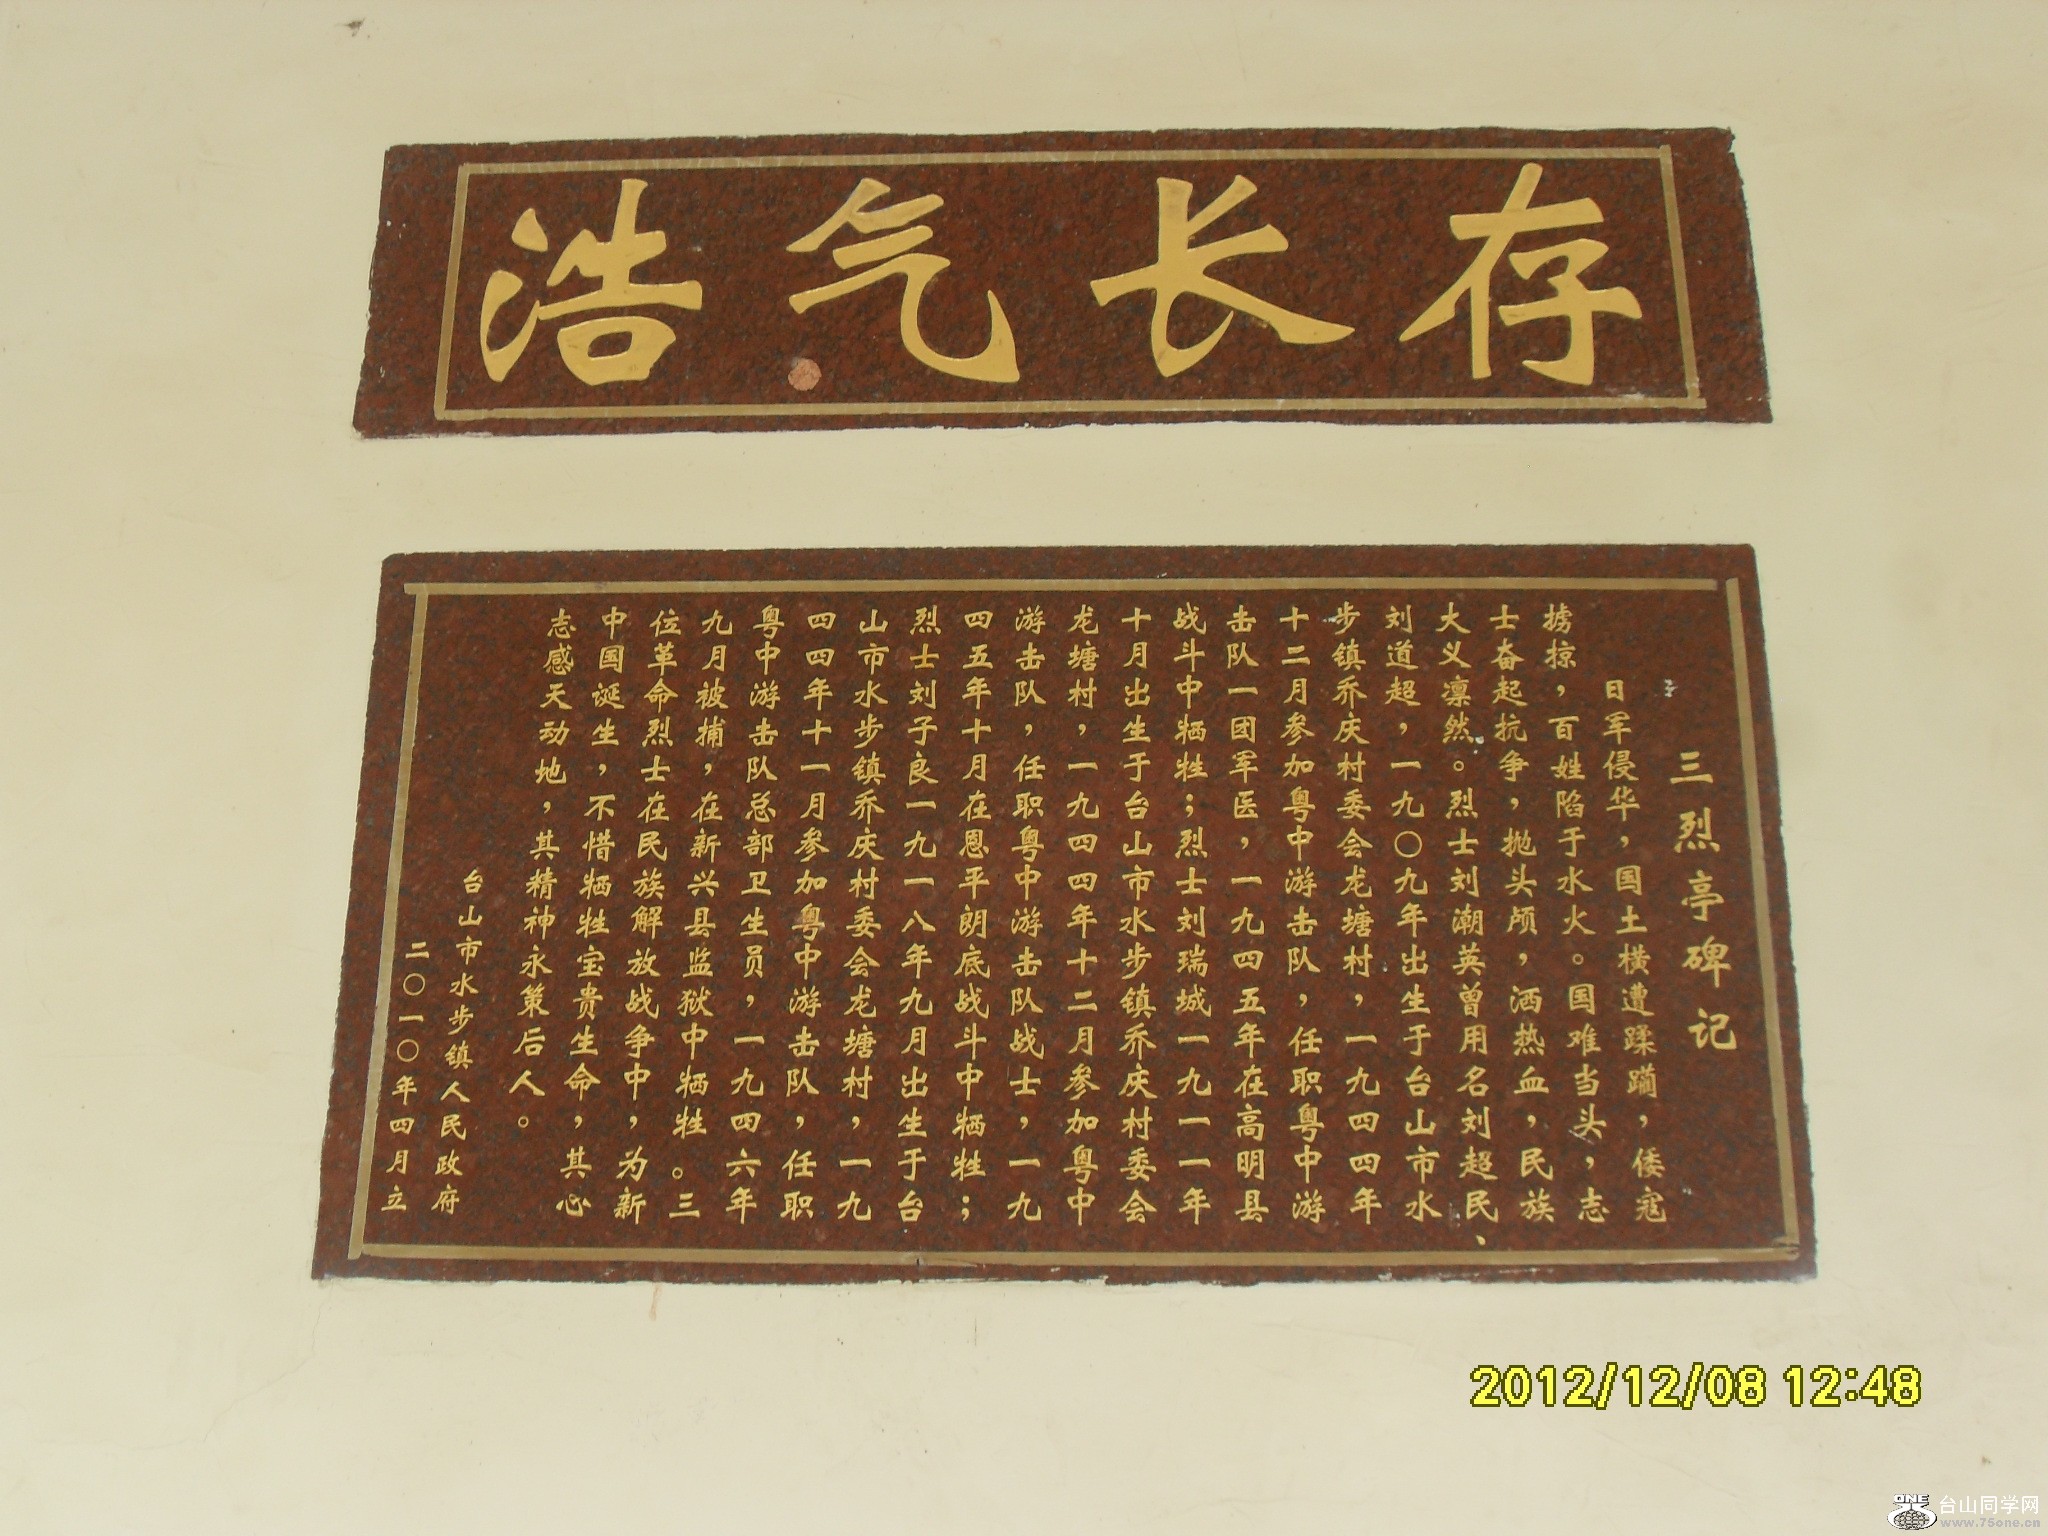 浩气长存
三烈亭碑记
日军侵华，国土横遭蹂躏，倭寇
掳掠，百姓陷于水火。国难当头，志
士奋起抗争，抛头颅，洒热血，民族
大义凛然。烈士刘潮英曾用名刘超民、
刘道超，一九〇九年出生于台山市水
步镇乔庆村委会龙塘村，一九四四年
十二月参加粤中游击队，任职粤中游
击队一团军医，一九四五年在高明县
战斗中牺牲；烈士刘瑞城一九一一年
十月出生于台山市水步镇乔庆村委会
龙塘村，一九四四年十二月参加粤中
游击队，任职粤中游击队战士，一九
四五年十月在恩平朗底战斗中牺牲；
烈士刘子良一九一八年九月出生于台
山市水步镇乔庆村委会龙塘村，一九
四四年十一月参加粤中游击队，任职
粤中游击队总部卫生员，一九四六年
九月被捕，在新兴县监狱中牺牲。三
位革命烈士在民族解放战争中，为新
中国诞生，不惜牺牲宝贵生命，其心
志感天动地，其精神永策后人。
台山市水步镇人民政府
二〇一〇年四月立
2012/12/08 12:48
ONE 台山同学网
www.75one.cn